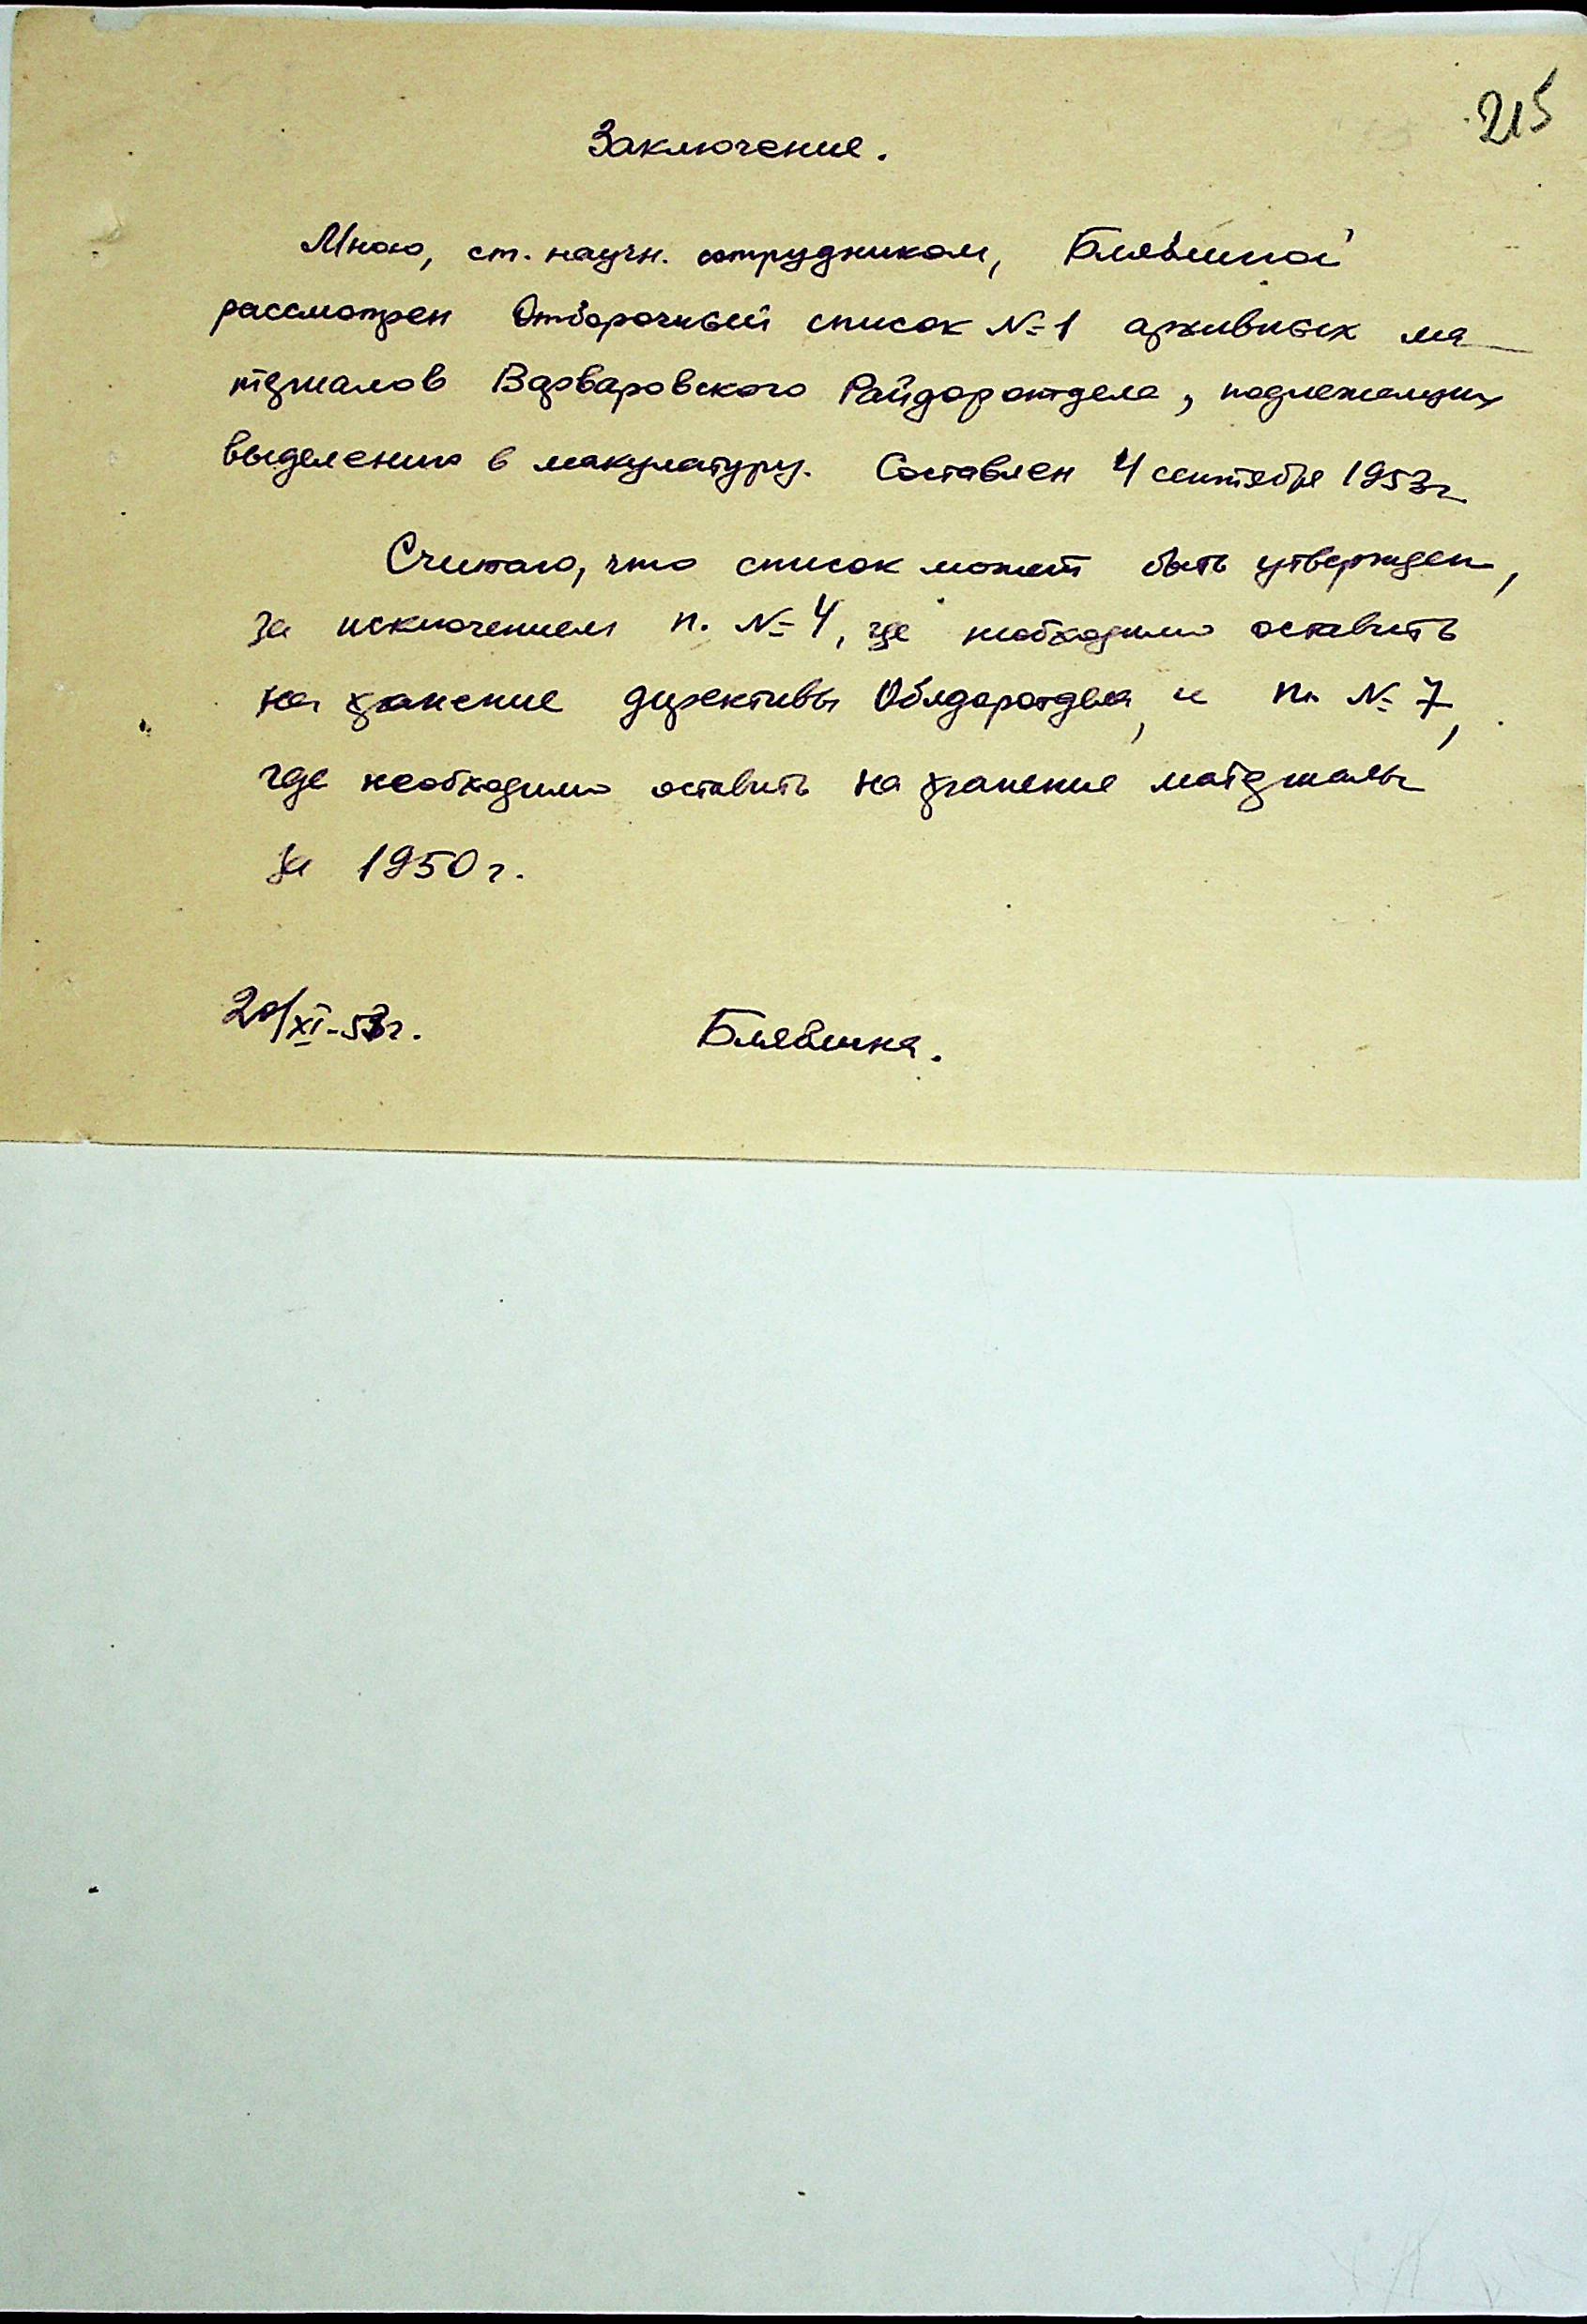 215
Заключение.
Мною, ст. научн. сотрудником, Блявиной
рассмотрен Отборочный список №1 архивных ма
териалов Варваровского Райдоротдела, подлежащих
выделению в макулатуру. Составлен 4 сентября 1953г
Считаю, что список может быть утвержден,
за исключением п. №4, где необходимо оставить
на хранение директивы Облдоротдела, и п. №7,
где необходимо оставить на хранение материалы
за 1950г.
20/XI-53г. Блявина.